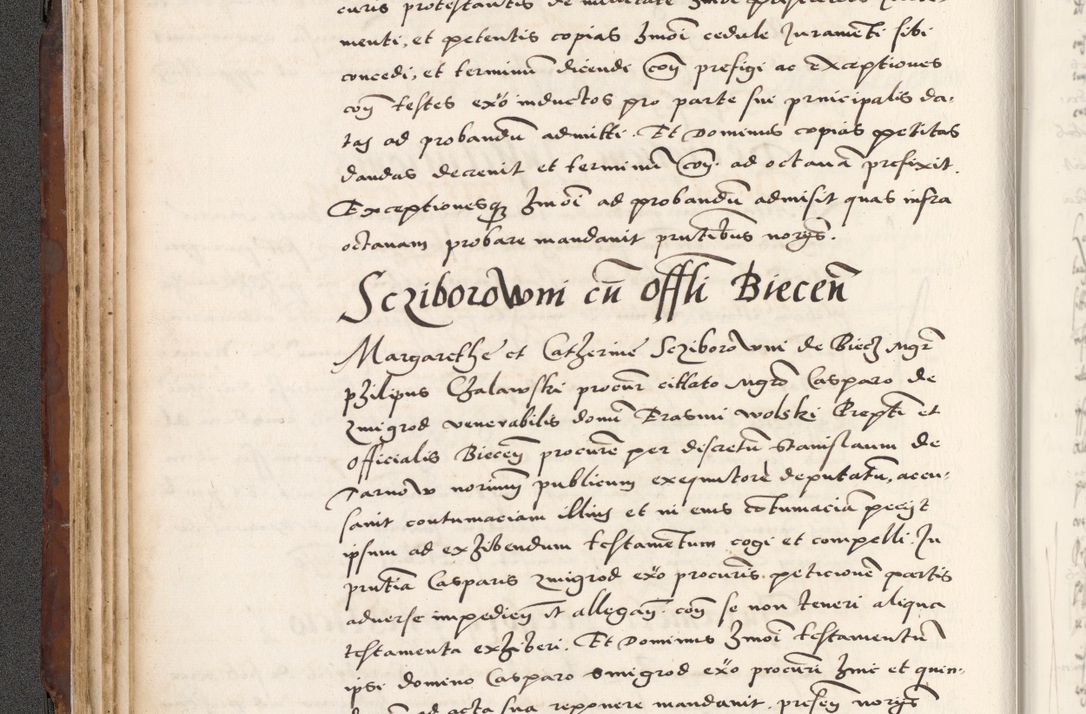 menti, et petentis copias hmoi cedule Juramẽti sibi
concedi, et terminum dicendi cõ prefigi ac exceptiones
cõ testes exõ inductos pro parte sui principalis da-
tas ad probandũ admitti. Et Dominus copias petitas
dandas decrevit et terminũ cõ. ad octauã prefixit.
Exceptionesq hmoi ad probandũ admisit quas infra
octauam probare mandauit pñtibus norijs.
Scziborowni cũ Offli Biecen̄
Margarethe et Catherine Scziborowni de Biecz Mgr̃
philipus Chalawski procur̃ citato Mgrõ Casparo de
zmigrod venerabilis domi Erasmi Wolski Prepti et
officialis Biecen̄ procure per discretũ Stanislaum de
Tarnow norium publicum exequutorẽ deputatũ, accu-
sauit contumaciam illius et in eius cõtumaciã pecijt
ipsum ad exhibendum testamẽtum cogi et compelli. In
pñtia Casparis zmigrod exõ procuris peticionẽ partis
aduerse impedien̄ et allegan̄. cõ se non teneri aliqua
testamenta exhiberi. Et Dominus hmoi testamentũ
ipsi domino Casparo Smigrod exõ procuri hmi et quin-
ad acta sua reponere mandauit. presen̄ norijs